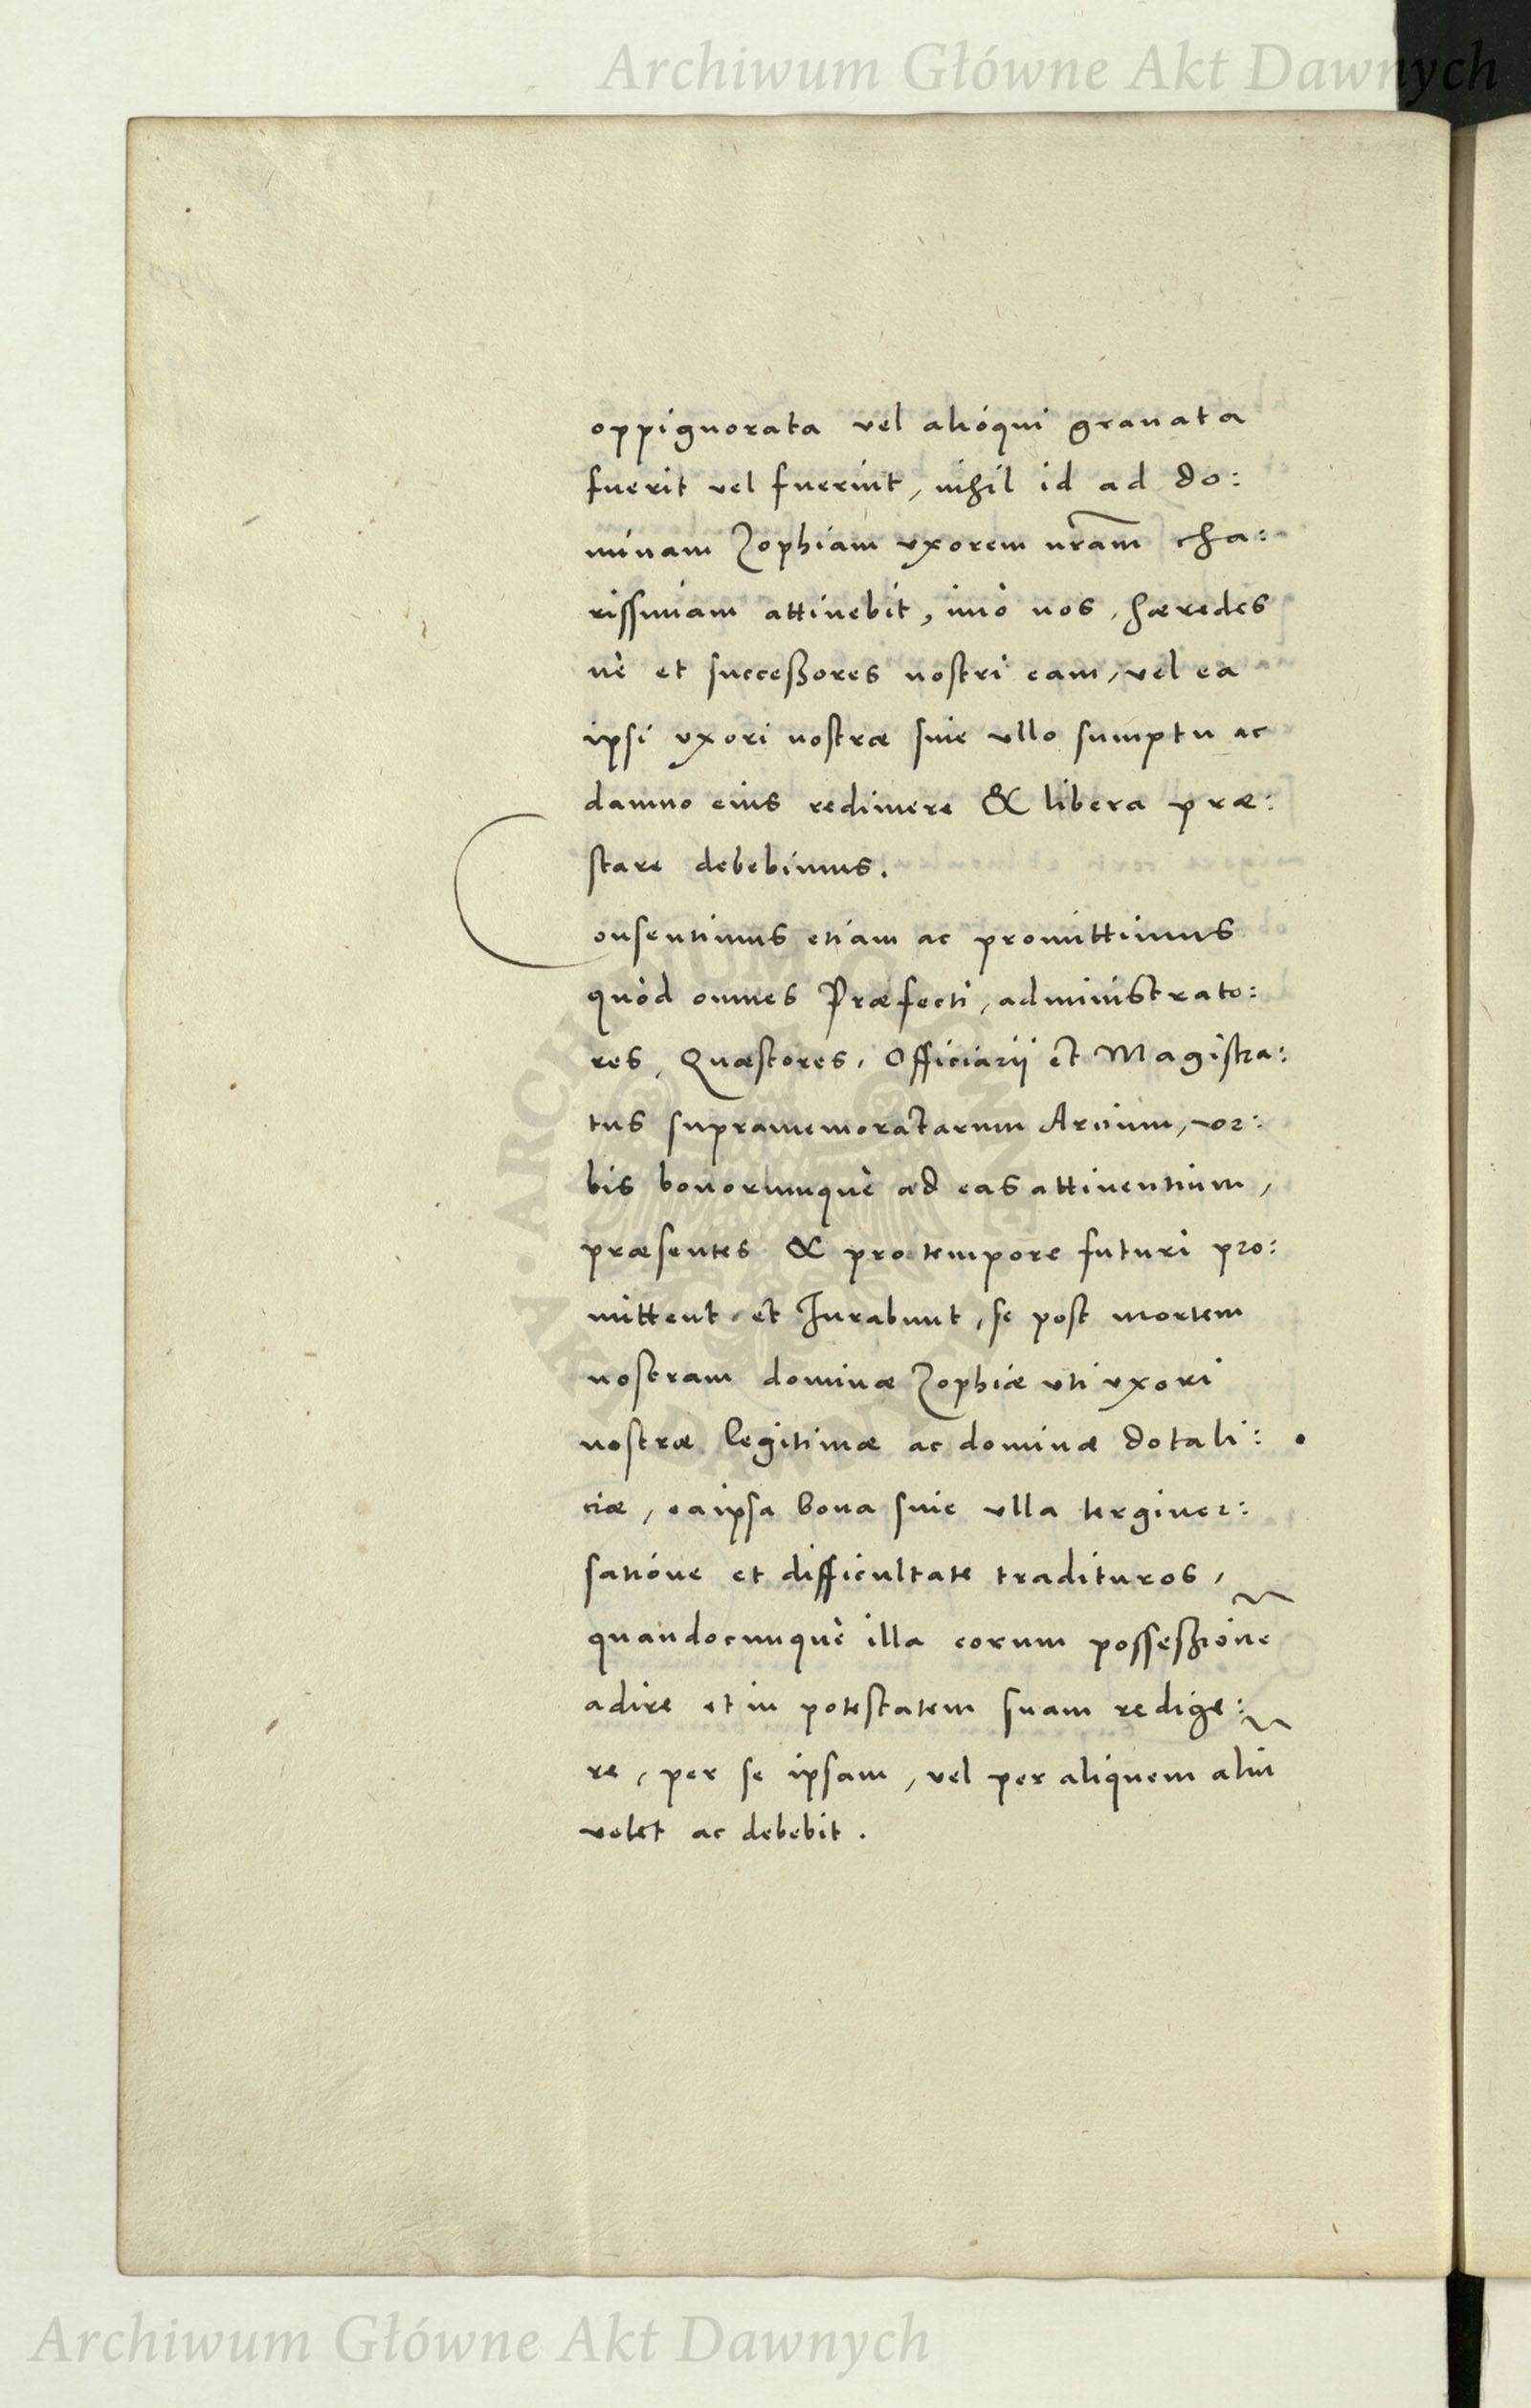 Archiwum Główne Akt Dawnych
oppignorata vel alióqui grauata
fuerit vel fuerint, nihil id ad do:
minam Zophiam vxorem nr̃am cha:
rissimam attinebit, imò nos, hæredes
uè et successores nostri eam, vel ea
ipsi vxori nostræ sine vllo sumptu ac
damno eius redimere & libera præ:
stare debebimus.
Consentimus etiam ac promittimus
quòd omnes Præfecti, administrato:
res, Quæstores, Officiarij et Magistra:
tus supramemoratarum Arcium, vr:
bis bonorumquè ad eas attinentium,
præsentes & pro tempore futuri pro:
mittent et Jurabunt, se post mortem
nostram dominæ Zophiæ vti vxori
nostræ legitimæ ac dominæ dotali:
ciæ, ea ipsa bona sine vlla tergiuer:
satióne et difficultate tradituros,
quandocunquè illa eorum possessionẽ
adire et in potestatem suam redige:
re, per se ipsam, vel per aliquem aliũ
volet ac debebit.
ARCHIWUM GŁÓWNE AKT DAWNYCH
Archiwum Główne Akt Dawnych